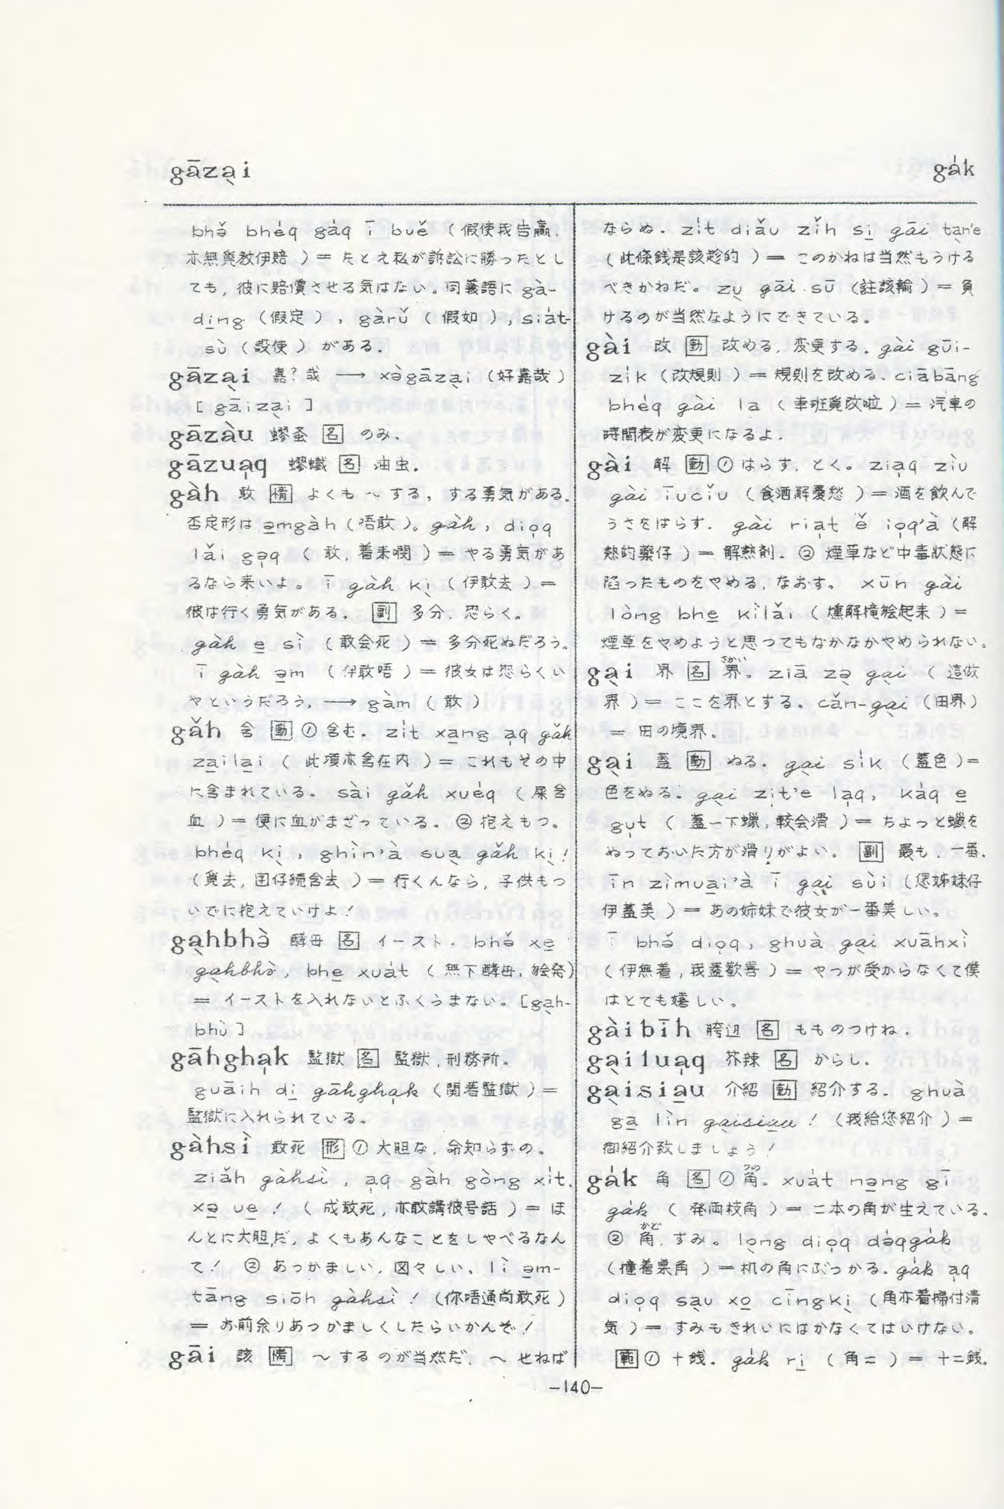 gāzại
ga̍k
bhǒ bhe̍q ga̍q ī buě (假使我告贏,
亦無與教伊賠)= たとえ私が訴訟に勝ったとし
ても, 彼に賠償させる気はない。同義語に gà-
dịng (假定), gàrǔ (假如), siat-
sù (設使) がある.
gāzại 嘉?哉 → xògāzại (好嘉哉)
[gāizại]
gāzàu 蟉蚤 [名] のみ.
gāzuạq 蟉蠘 [名] 油虫.
gàh 敢 [情] よくも ~ する, する勇気がある.
否定形は əmgàh (唔敢)。gàh, dioq
lǎi gəq (敢, 着来嘓)= やる勇気があ
るなら来いよ。ī gàh kị (伊敢去)=
彼は行く勇気がある. [副] 多分, 恐らく。
gàh e sì (敢会死)= 多分死ぬだろう。
ī gàh əm (伊敢唔)= 彼女は恐らくい
やというだろう. → gàm (敢)
gǎh 含 [動] ① 含む. zit xạng ạq gǎh
zạilại (此項亦含在内)= これもその中
に含まれている。 sài gǎh xueq (屎含
血)= 便に血がまざっている. ② 抱えもつ。
bheq kị, ghìn'à suạ gǎh kị!
(覓去, 囝仔続含去)= 行くんなら, 子供もつ
いでに抱えていけよ!
gạhbhò 酵母 [名] イースト. bhǒ xe
gạhbhò, bhe xuat (無下酵母, 𣍐発)
= イーストを入れないとふくらまない。[gạh-
bhù]
gāhghạk 監獄 [名] 監獄, 刑務所.
guāih dị gāhghạk (関着監獄)=
監獄に入れられている。
gàhsì 敢死 [形] ① 大胆な, 命知らずの。
ziǎh gàhsì, ạq gàh gòng xit.
xə ue! (成敢死, 亦敢講彼号話)= ほ
んとに大胆だ, よくもあんなことをしゃべるなん
て! ② あつかましい, 図々しい. lì əm-
tāng siōh gàhsì! (你唔通尚敢死)
= お前余りあつかましくしたらいかんぞ!
gāi 該 [情] ~するのが当然だ, ~ せねば
ならぬ. zit diǎu zǐh sị gāi tạn'e
(此條銭是該趁的)= このかねは当然もうける
べきかねだ。zụ gāi sū (註該輸)= 負
けるのが当然なようにできている。
gài 改 [動] 改める, 変更する. gài gūi-
zik (改規則)= 規則を改める. ciābāng
bheq gài la (車班覓改啦)= 汽車の
時間表が変更になるよ.
gài 解 [動] ① はらす, とく。ziạq ziù
gài iuciǔ (食酒解憂愁)= 酒を飲んで
うさをはらす. gài riat ě ioq'à (解
熱的藥仔)= 解熱剤. ② 煙草など中毒状態に
陥ったものをやめる, なおす. xūn gài
lòng bhe kìlǎi (燻解櫳𣍐起来)=
煙草をやめようと思ってもなかなかやめられない。
gại 界 [名] 界。ziā zə gại (這做
界)= ここを界とする。cǎn-gại (田界)
= 田の境界.
gại 蓋 [動] ぬる. gại sik (蓋色)=
色をぬる. gại zit'e laq, kaq e
gụt (蓋一下蠟, 較会滑)= ちょっと蠟を
ぬっておいた方が滑りがよい. [副] 最も, 一番.
īn zìmuại'à ī gại sùi (𪜶姊妹仔
伊蓋美)= あの姉妹で彼女が一番美しい。
ī bhǒ dioq, ghuà gại xuāhxì
(伊無着, 我蓋歓喜)= やつが受からなくて僕
はとても嬉しい。
gàibīh 胯辺 [名] もものつけね.
gạiluạq 芥辣 [名] からし.
gạisiạu 介紹 [動] 紹介する. ghuà
gạ lìn gạisiạu! (我給您紹介)=
御紹介致しましょう!
ga̍k 角 [名] ① 角. xuat nạng gī
gak (発両枝角)= 二本の角が生えている。
② 角, すみ。lọng dioq dəqgak
(撞着桌角)= 机の角にぶつかる. gak ạq
dioq sạu xo cīngkị (角亦着掃付清
気)= すみもきれいにはかなくてはいけない。
[範] ① 十銭. gak rị (角二)= 十二銭.
—140—